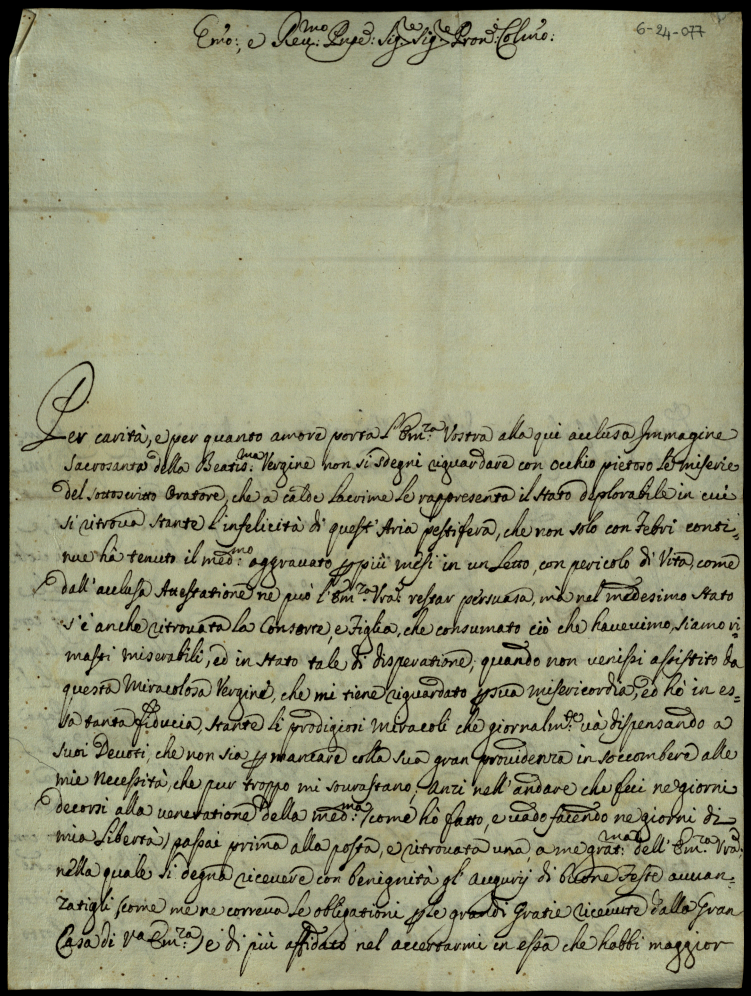 Emo:, e Reu:mo Pnpe: Sig:re Sig:re Pron:e Colmo:
6-24-077
Per carità, e per quanto amore porta l'Em:ra Vostra alla qui acclusa Immagine
Sacrosanta della Beatis:ma Vergine non si sdegni riguardare con occhio pietoso le miserie
del sottoscritto Oratore, che a calde lacrime le rappresenta il stato deplorabile in cui
si ritrova stante l'infelicità di quest'Aria pestifera, che non solo con Febri conti:
nue hà tenuto il med:mo aggravato p più mesi in un Letto, con pericolo di Vita, come
dall'acclusa Attestatione ne può l'Em:ra Vra: restar persuasa, mà nel medesimo stato
s'è anche ritrovata la Consorte, e Figlia, che consumato ciò che havevimo, siamo ri
masti miserabili, ed in stato tale di disperatione, quando non venissi assistito da
questa Miracolosa Vergine, che mi tiene riguardato p sua misericordia, ed hò in es:
sa tanta fiducia, stante li prodigiosi Miracoli che giornalm:te và dispensando a
suoi Devoti, che non sia p mancare colla sua gran providenza in soccombere alle
mie necessità, che pur troppo mi sovrastano; Anzi nell'andare che feci ne giorni
decorsi alla veneratione della med:ma (come hò fatto, e vado facendo ne giorni di
mia libertà) passai prima alla posta, e ritrovata una, a me grat:ma dell'Em:ra Vra:
nella quale si degna ricevere con benignità gl'Augurij di buone Feste avvan:
zatigli (come me ne correva le obligationi p le grandi Gratie ricevute dalla Gran
Casa di V:a Em:ra) e di più affidato nel accertarmi in essa che habbi maggior